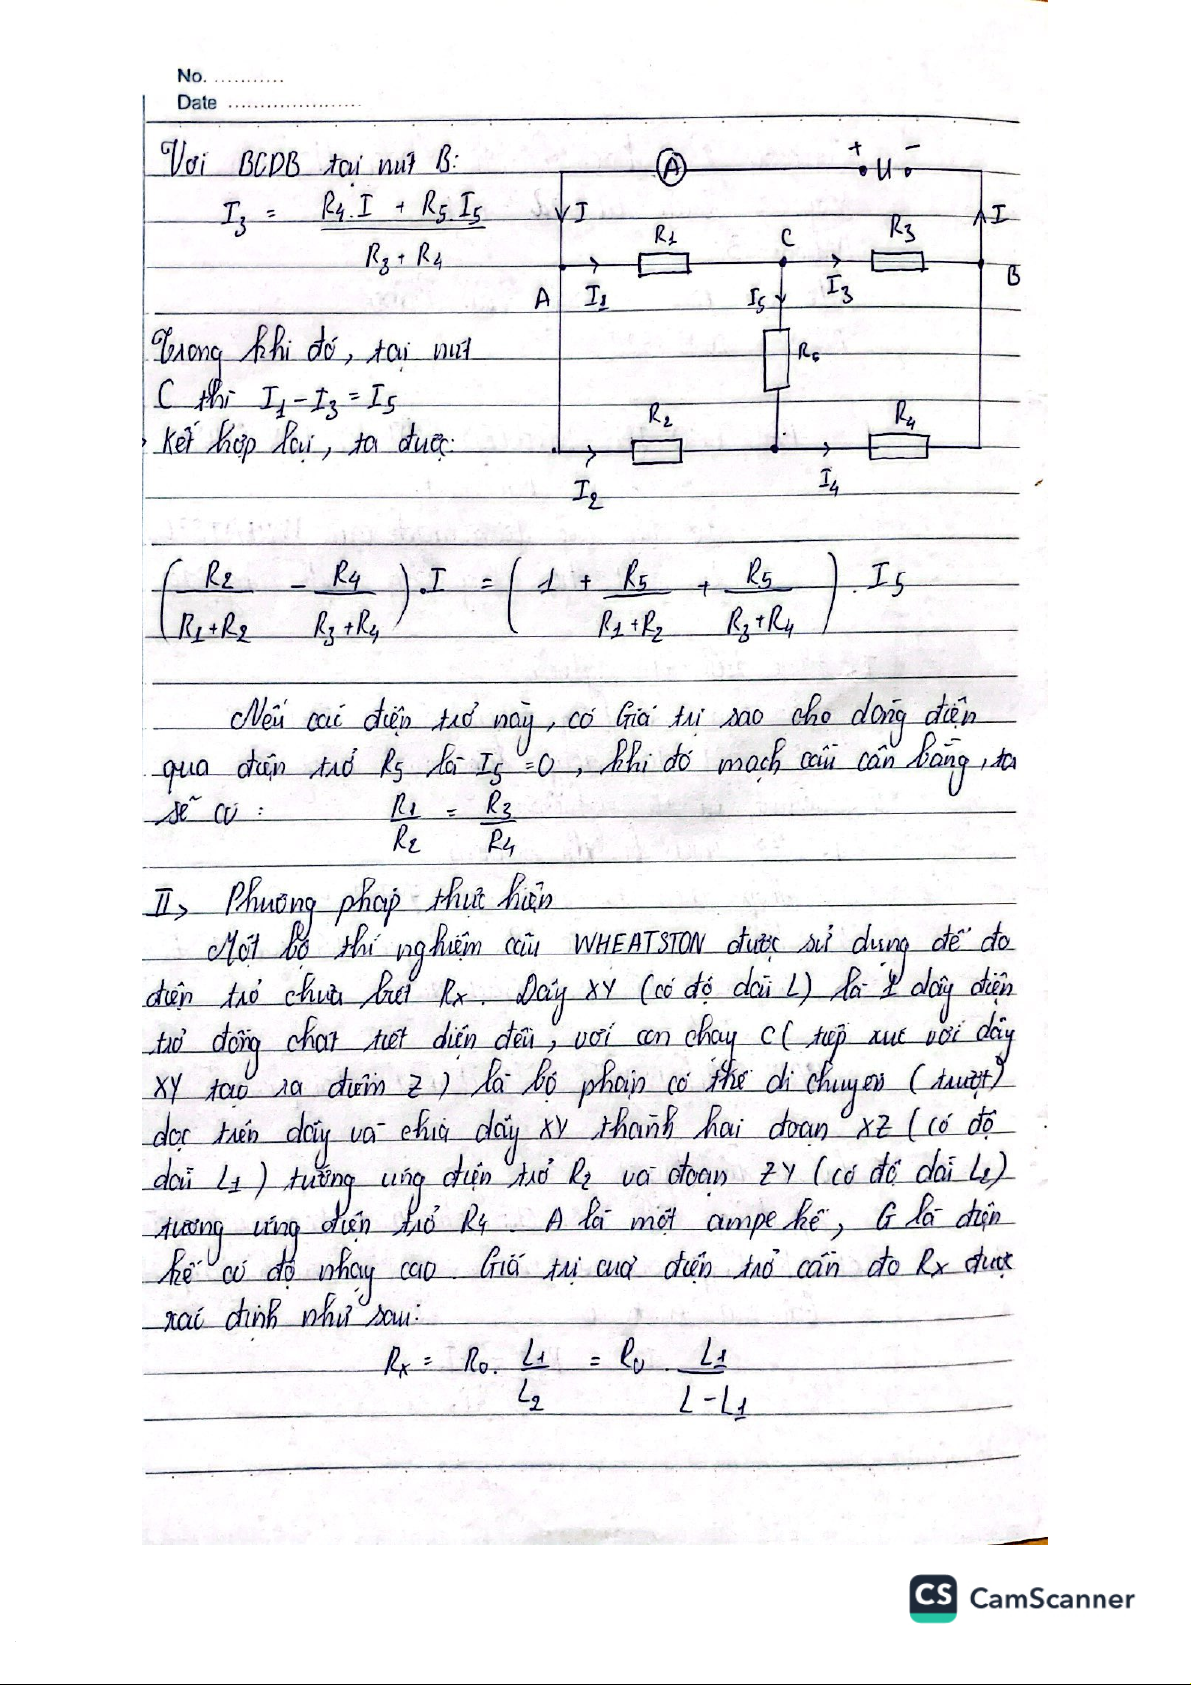 No. ...........
Date .....................
Với BCDB tại nút B:
I3 = R4.I + R5.I5 / R3 + R4
A
+ U -
I
I
R1
C
R3
B
A
I1
I5
I3
R5
Trong khi đó, tại nút
C thì I1 - I3 = I5
Kết hợp lại, ta được:
R2
R4
I2
I4
(R2 / R1+R2 - R4 / R3+R4).I = (1 + R5 / R1+R2 + R5 / R3+R4).I5
Nếu các điện trở này, có Giá trị sao cho dòng điện
qua điện trở R5 là I5 = 0, khi đó mạch cầu cân bằng, ta
sẽ có : R1/R2 = R3/R4
II, Phương pháp thực hiện
Một bộ thí nghiệm cầu WHEATSTON được sử dụng để đo
điện trở chưa biết Rx. Dây XY (có độ dài L) là 1 dây điện
trở đồng chất tiết diện đều, với con chạy C ( tiếp xúc với dây
XY tạo ra điểm Z ) là bộ phận có thể di chuyển ( trượt )
dọc trên dây và chia dây XY thành hai đoạn XZ ( có độ
dài L1 ) tương ứng điện trở R2 và đoạn ZY ( có độ dài L2)
tương ứng điện trở R4. A là một ampe kế, G là điện
kế có độ nhạy cao. Giá trị của điện trở cần đo Rx được
xác định như sau:
Rx = R0. L1/L2 = R0. L1/L-L1
CS CamScanner